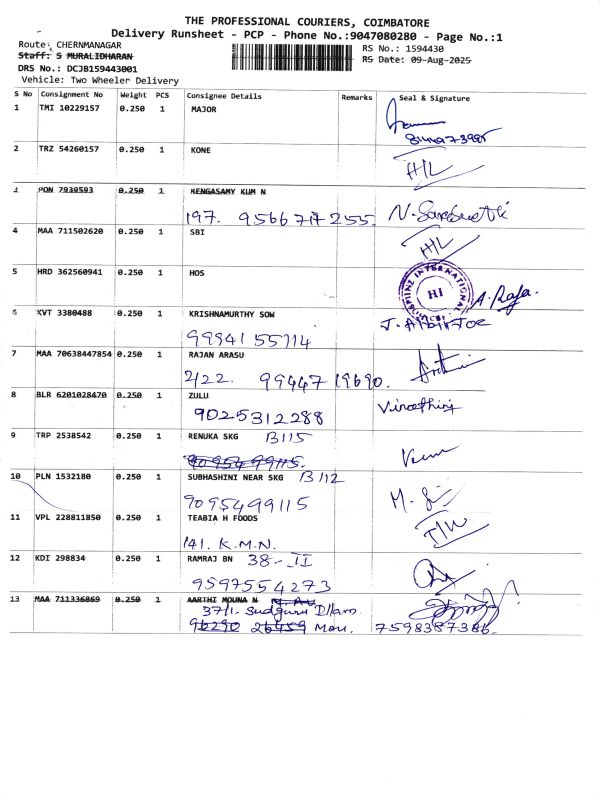 THE PROFESSIONAL COURIERS, COIMBATORE
Delivery Runsheet - PCP - Phone No.:9047080280 - Page No.:1
Route: CHERNMANAGAR
RS No.: 1594430
Staff: S MURALIDHARAN
RS Date: 09-Aug-2025
DRS No.: DCJB159443001
Vehicle: Two Wheeler Delivery
S No Consignment No Weight PCS Consignee Details Remarks Seal & Signature
1 TMI 10229157 0.250 1 MAJOR
2 TRZ 54260157 0.250 1 KONE
H/L
3 PON 7939593 0.250 1 RENGASAMY KUM N
197.
4 MAA 711502620 0.250 1 SBI
H/L
5 HRD 362560941 0.250 1 HOS
HI
A. Raja.
6 KVT 3380488 0.250 1 KRISHNAMURTHY SOW
99941 55114
7 MAA 70638447854 0.250 1 RAJAN ARASU
2/22. 99447 19690.
8 BLR 6201028470 0.250 1 ZULU
9025312288
9 TRP 2538542 0.250 1 RENUKA SKG B115
9095499115.
10 PLN 1532180 0.250 1 SUBHASHINI NEAR SKG B112
9095499115
11 VPL 228811850 0.250 1 TEABIA H FOODS
141. K.M.N.
12 KDI 298834 0.250 1 RAMRAJ BN 38-II
9597554273
13 MAA 711336869 0.250 1 AARTHI MOUNA N
37/1. Sudguru Illam.
96290 26459 Mou. 7598387386.